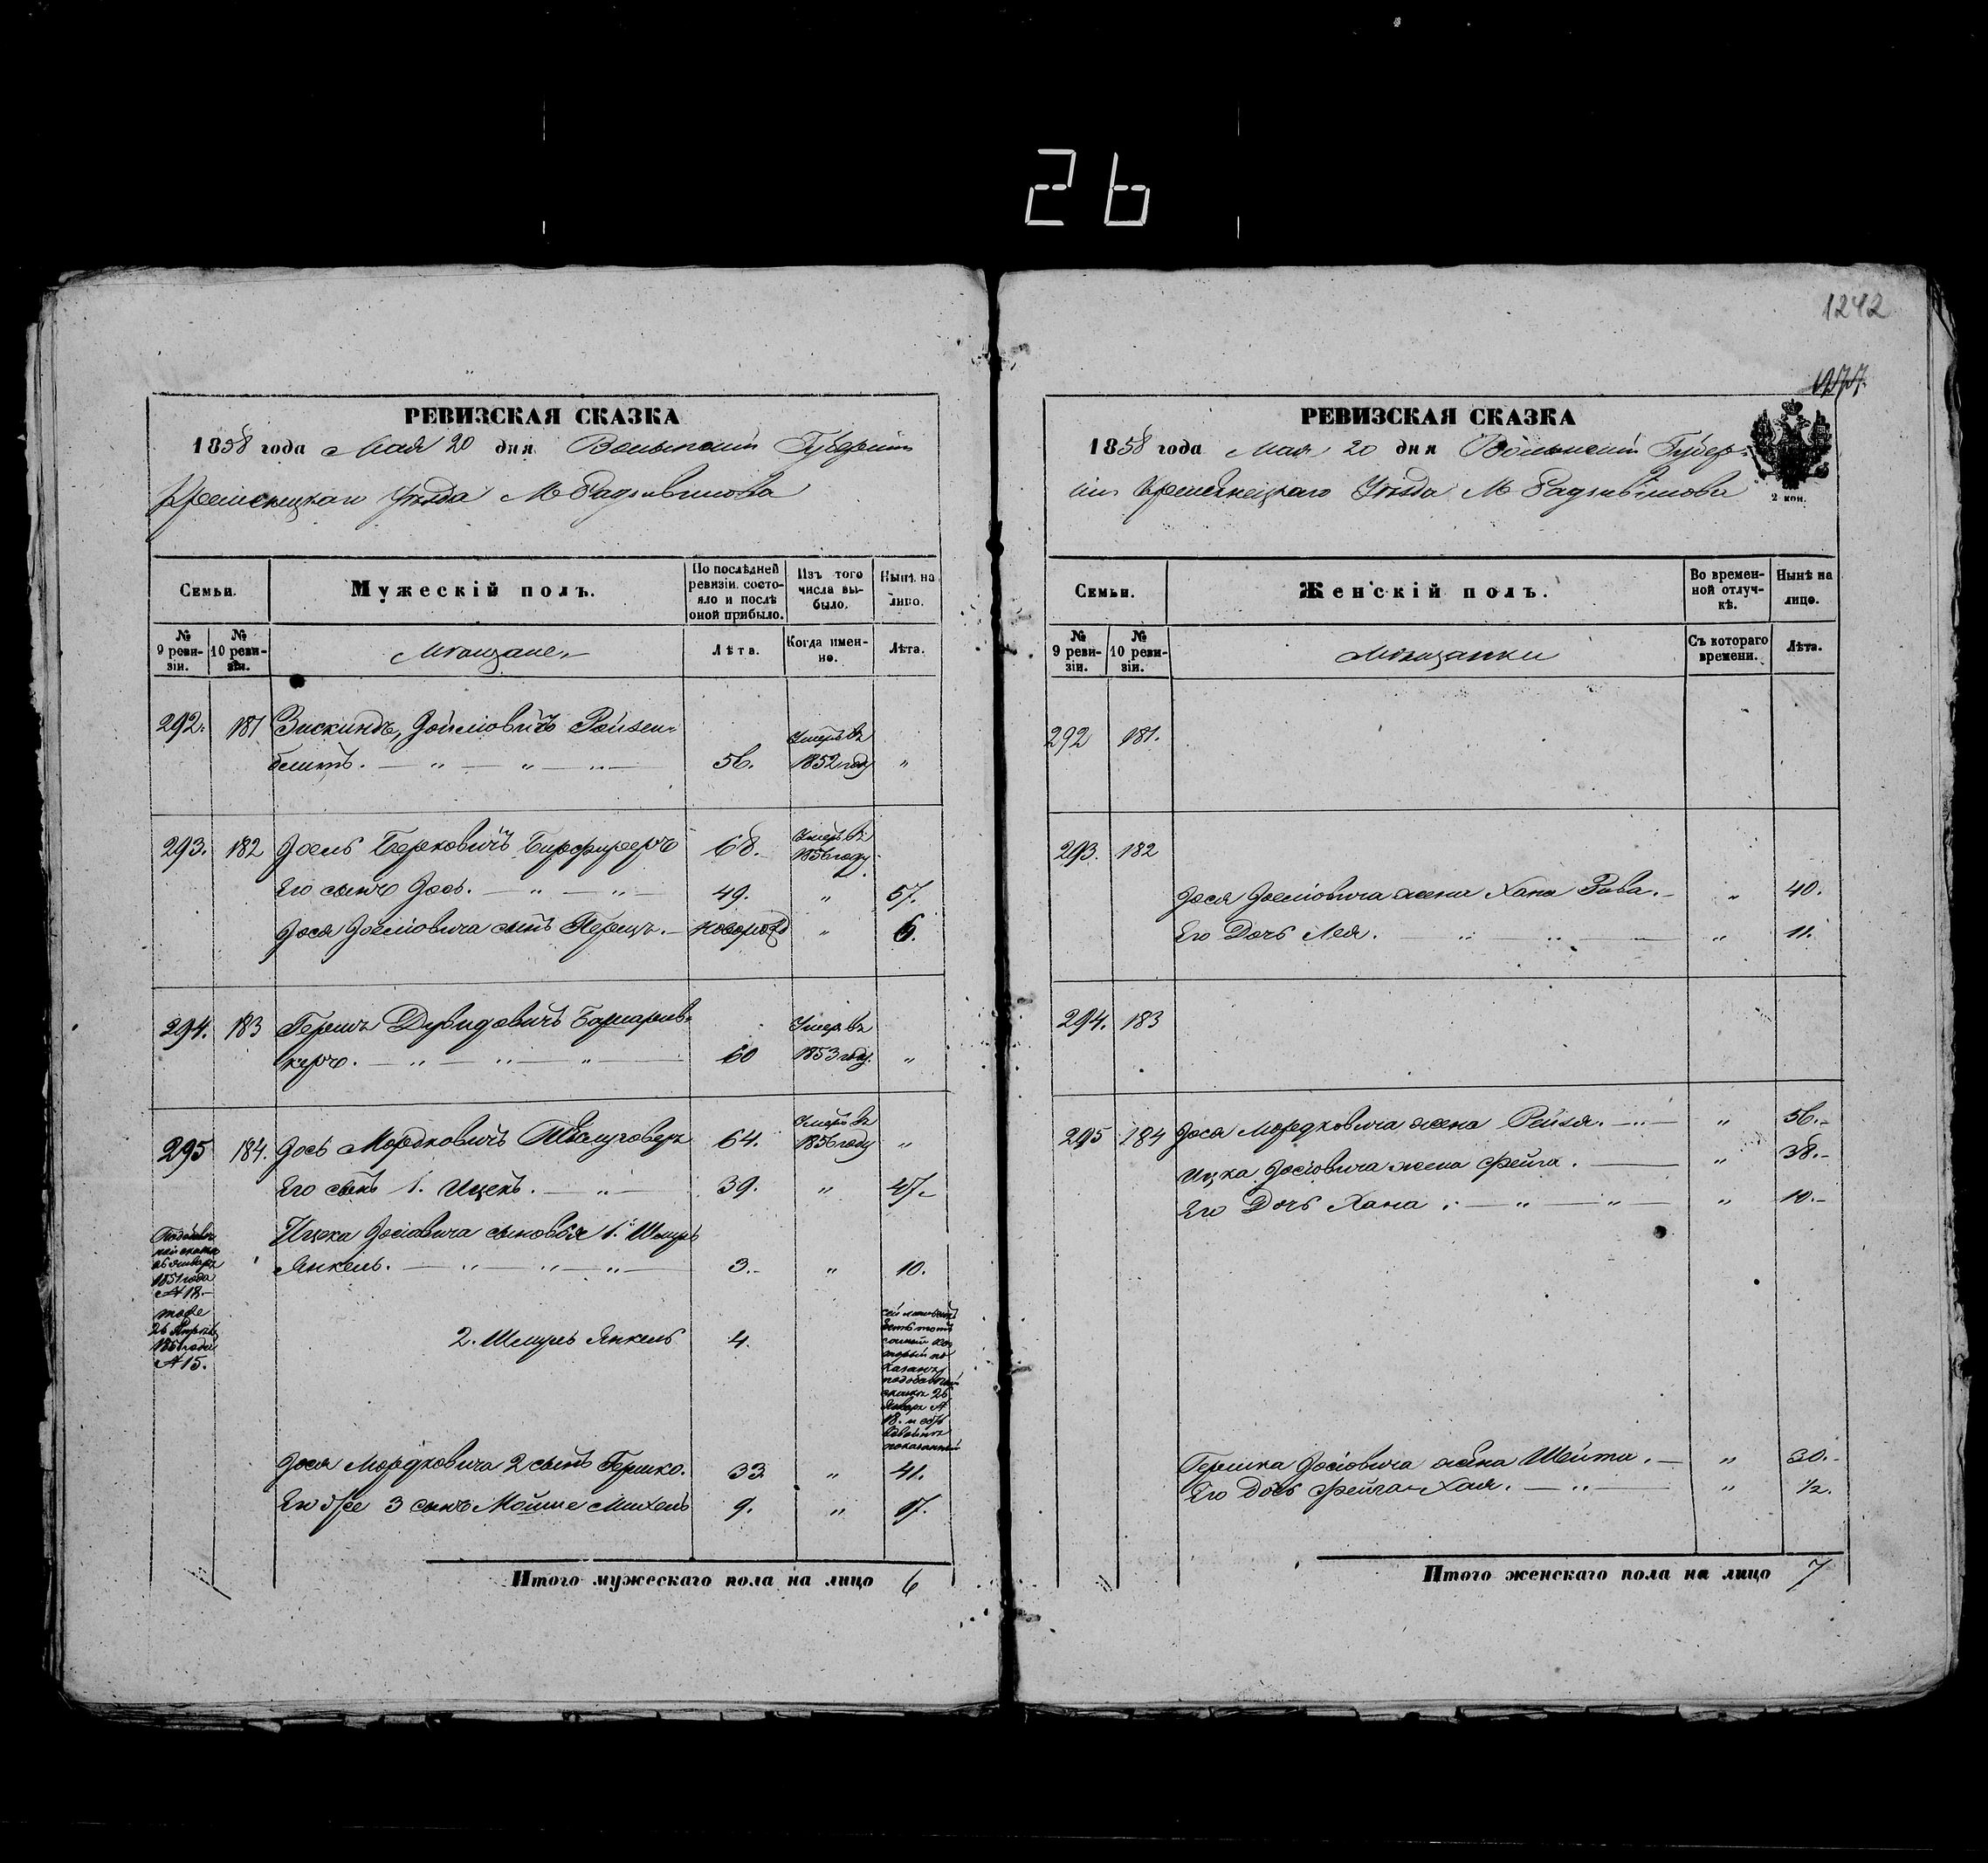 26
1242
РЕВИЗСКАЯ СКАЗКА
1858 года Мая 20 дня Волынской Губерніи
Кременецкаго Уѣзда М Радзивилова
Семьи.
Мужескій полъ.
По послѣдней ревизіи состояло и послѣ оной прибыло.
Изъ того числа выбыло.
Нынѣ на лицо.
№ 9 ревизіи.
№ 10 ревизіи.
Мѣщане
Лѣта.
Когда именно.
Лѣта.
292. 181 Зискиндъ, Іойліовичъ
56. Умеръ въ 1852 году "
293. 182 Іоель Берковичъ 68. Умеръ въ 1856 году.
Его сынъ Іось. 49. " 57.
Іося Іоеліовича сынъ Перецъ. новорожд " 6.
294. 183 Гершъ Дувидовичъ
керъ. 60 Умеръ въ 1853 году. "
295 184. Іось Мордковичъ 64. Умеръ въ 1856 году "
Его сынъ 1. Ицекъ. 39. " 47.
Ицка Іосіовича сыновья 1. Шмуль
Янкель. 3. " 10.
26 Января
1851 года
№ 18.
тоже
1851 года
№ 15.
2. Шмуль Янкель 4.
Іося Мордковича 2 сынъ Гершко. 33 " 41.
Его же 3 сынъ Мошше Михель 9. " 17.
Итого мужескаго пола на лицо 6
РЕВИЗСКАЯ СКАЗКА
1858 года Мая 20 дня Волынской Губер-
ніи Кременецкаго Уѣзда М Радзивилова
2 коп.
Семьи.
Женскій полъ.
Во временной отлучкѣ.
Нынѣ на лицо.
№ 9 ревизіи.
№ 10 ревизіи.
Мѣщанки
Съ котораго времени.
Лѣта.
292 181.
293. 182
Іося Іоеліовича жена Хана Рива. " 40.
Его Дочь Лея. " 11.
294. 183
295 184 Іося Мордковича жена Рейзя. " 56.
Ицка Іосіовича жена Фейга. " 38.
Его Дочь Хана. " 10.
Гершка Іосіовича жена Шейтя. " 30.
Его дочь Фейга-Хая. " 1/2.
Итого женскаго пола на лицо 7